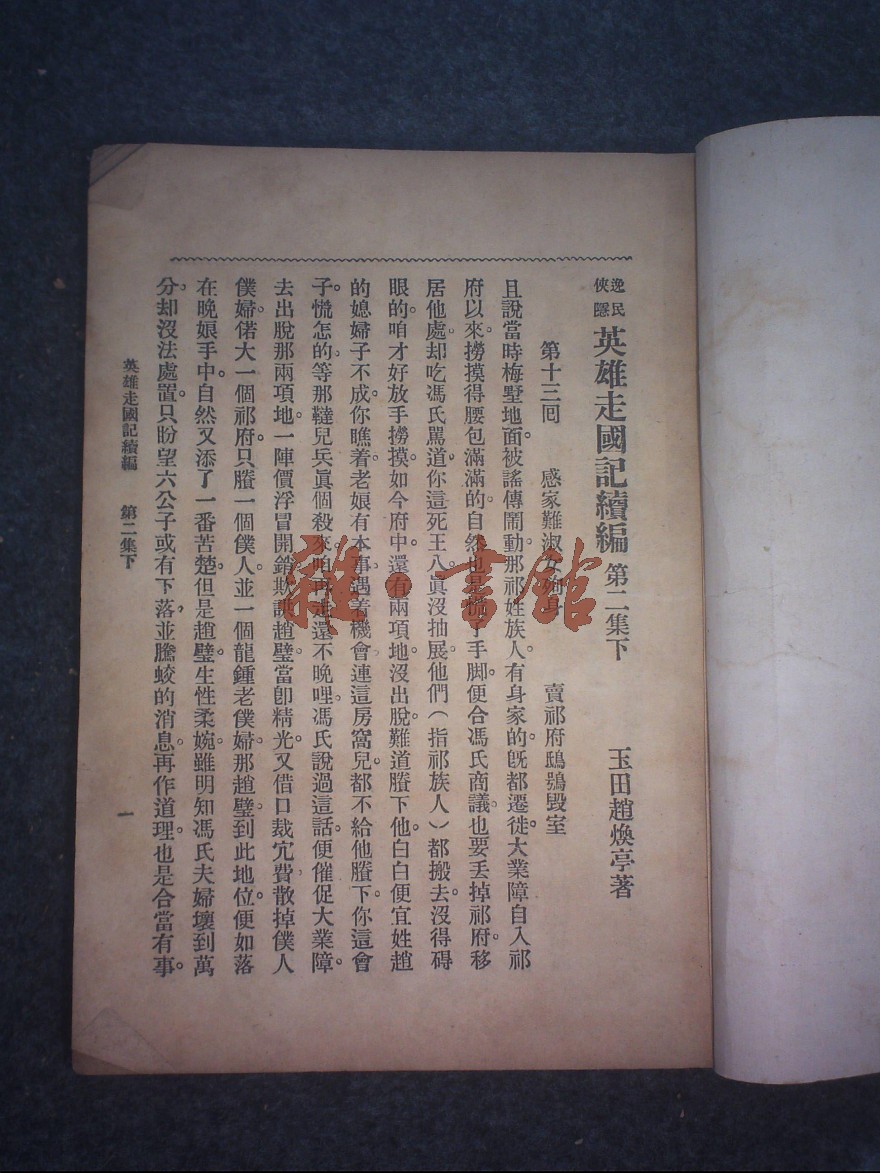 逸民俠隱 英雄走國記續編 第二集下
玉田趙煥亭著
第十三回 感家難淑女 身 賣祁府鴟鴞毀室
且說當時梅墅地面。被謠傳鬧動。那祁姓族人。有身家的。旣都遷徙。大業障自入祁
府以來。撈摸得腰包滿滿的。自然也是慌了手脚。便合馮氏商議。也要丢掉祁府。移
居他處。却吃馮氏駡道。你這死王八。眞沒抽展。他們（指祁族人）都搬去。沒得碍
眼的。咱才好放手撈摸。如今府中還有兩項地。沒出脫。難道賸下他。白白便宜姓趙
的媳婦子不成。你瞧着老娘有本事。遇着機會。連這房窩兒。都不給他賸下。你這會
子。慌怎的。等那韃兒兵眞個殺來。咱再走還不晚哩。馮氏說過這話。便催促大業障。
去出脫那兩項地。一陣價浮冒開銷。欺誑趙璧。當卽精光。又借口裁冗費。散掉僕人
僕婦。偌大一個祁府。只賸一個僕人。並一個龍鍾老僕婦。那趙璧到此地位。便如落
在晚娘手中。自然又添了一番苦楚。但是趙璧生性柔婉。雖明知馮氏夫婦壞到萬
分。却沒法處置。只盼望六公子或有下落。並膽蛟的消息。再作道理。也是合當有事。
英雄走國記續編 第二集下
一
雜·書館